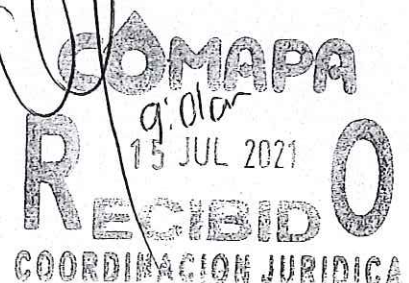 COMAPA
15 JUL 2021
RECIBIDO
COORDINACION JURIDICA